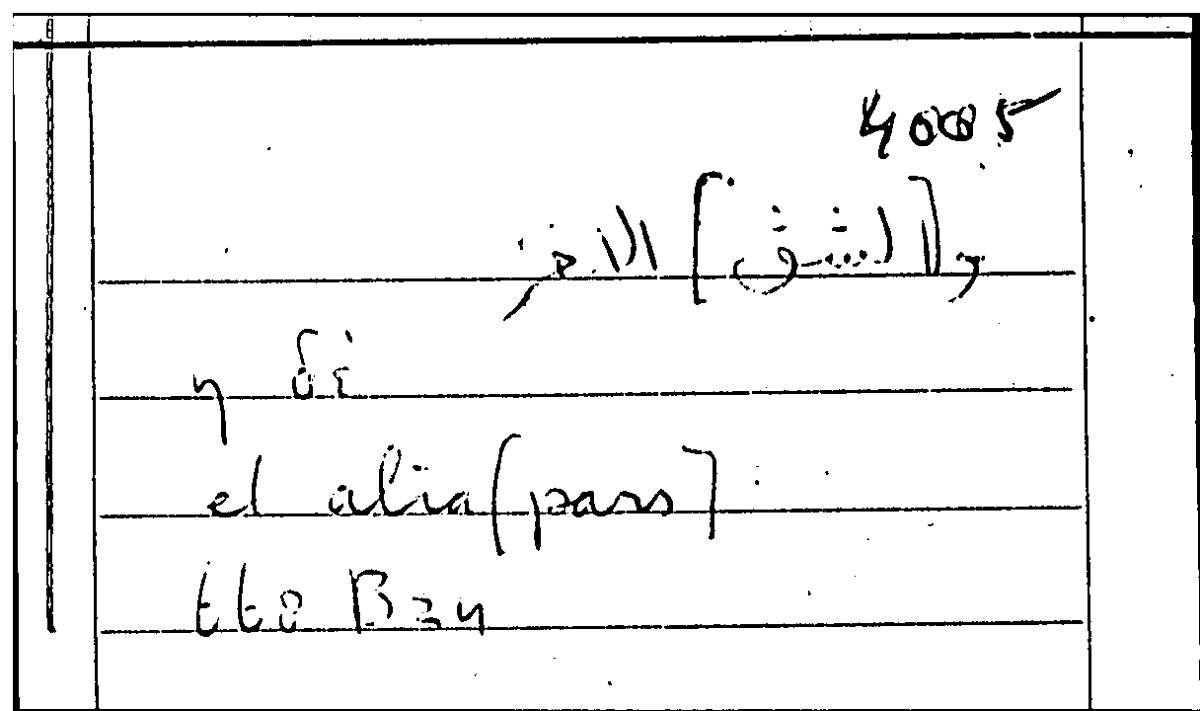 40005
و[الشق] الاخر
η δὲ
el alia (pars]
tto B 24